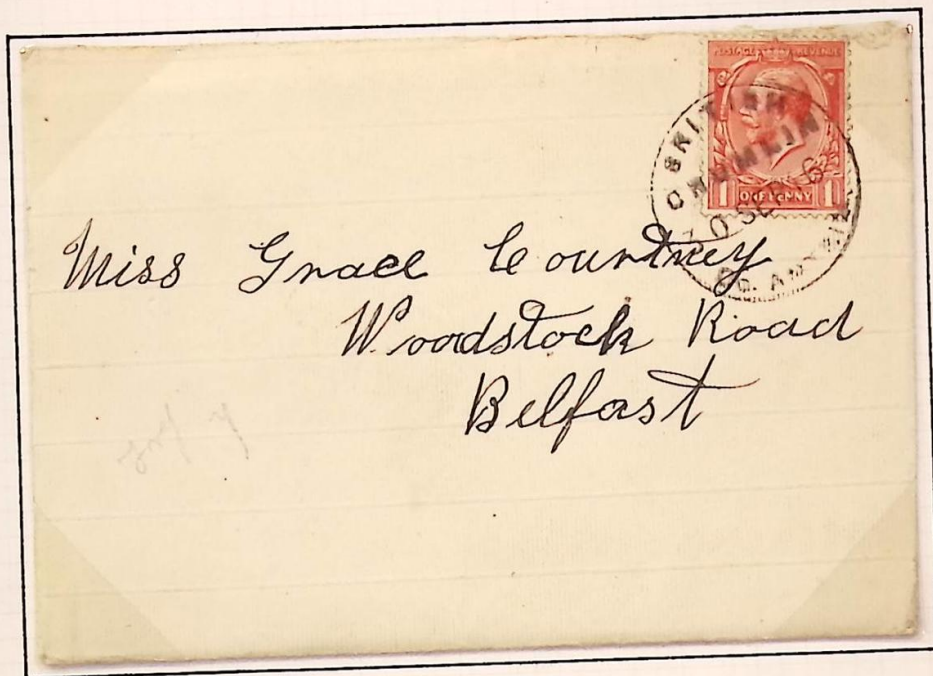 POSTAGE REVENUE
1 ONE PENNY 1
CRUMLIN
CO. ANTRIM
Miss Grace Courtney
Woodstock Road
Belfast